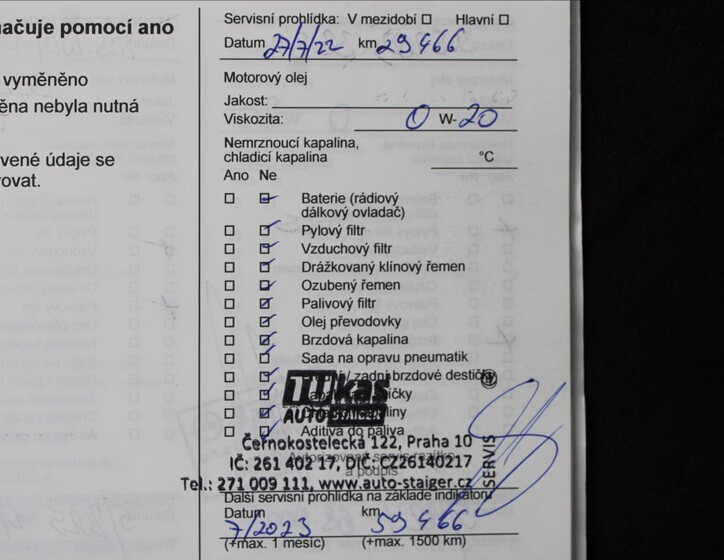 načuje pomocí ano
vyměněno
ěna nebyla nutná
vené údaje se
ovat.
Servisní prohlídka: V mezidobí Hlavní
Datum 27/7/22 km 29466
Motorový olej
Jakost:
Viskozita: 0 W-20
Nemrznoucí kapalina,
chladicí kapalina °C
Ano Ne
Baterie (rádiový
dálkový ovladač)
Pylový filtr
Vzduchový filtr
Drážkovaný klínový řemen
Ozubený řemen
Palivový filtr
Olej převodovky
Brzdová kapalina
Sada na opravu pneumatik
/ zadní brzdové destičky
Aditiva do paliva
AUTO
Černokostelecká 122, Praha 10
Autorizovaný servis razítko
a podpis
IČ: 261 402 17, DIČ: CZ26140217
Tel.: 271 009 111, www.auto-staiger.cz
SERVIS
Další servisní prohlídka na základě indikátoru
Datum km
7/2023 59466
(+max. 1 měsíc) (+max. 1500 km)